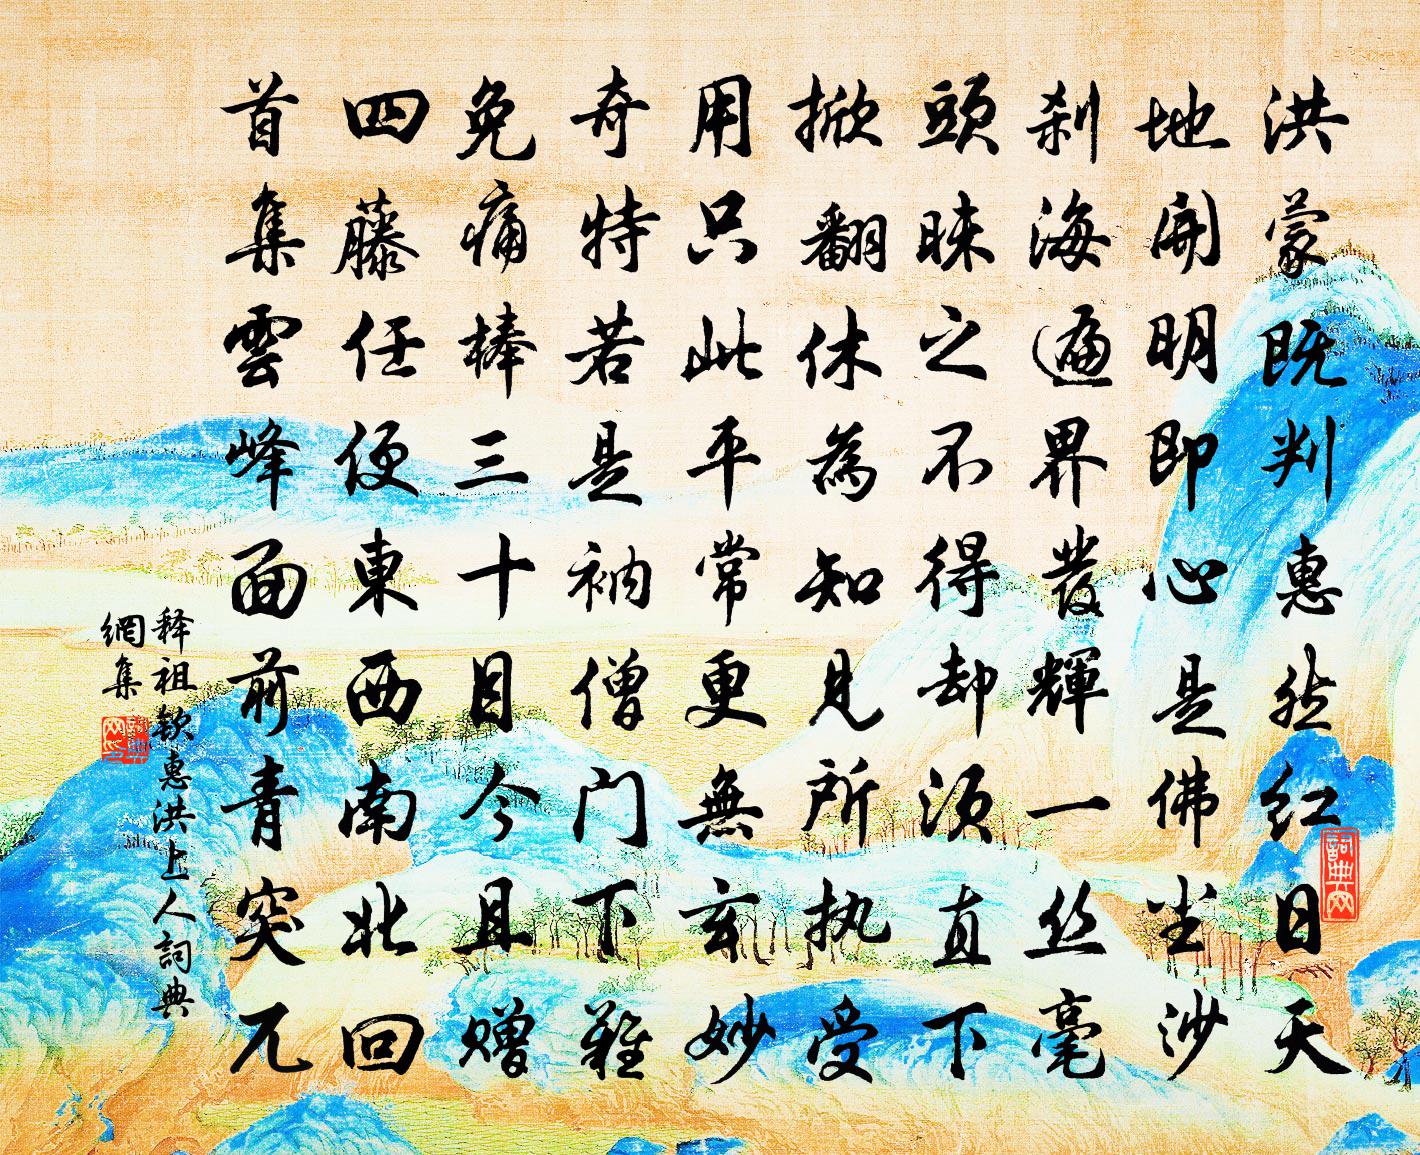 洪蒙既判惠然红日天
地開明即心是佛尘沙
刹海遍界發輝一丝毫
頭昧之不得却須直下
掀翻休為知見所执受
用只此平常更無玄妙
奇特若是衲僧门下難
免痛棒三十目今且赠
四藤任便東西南北回
首集雲峰面前青突兀
释祖钦惠洪上人詞典
網集
詞典网